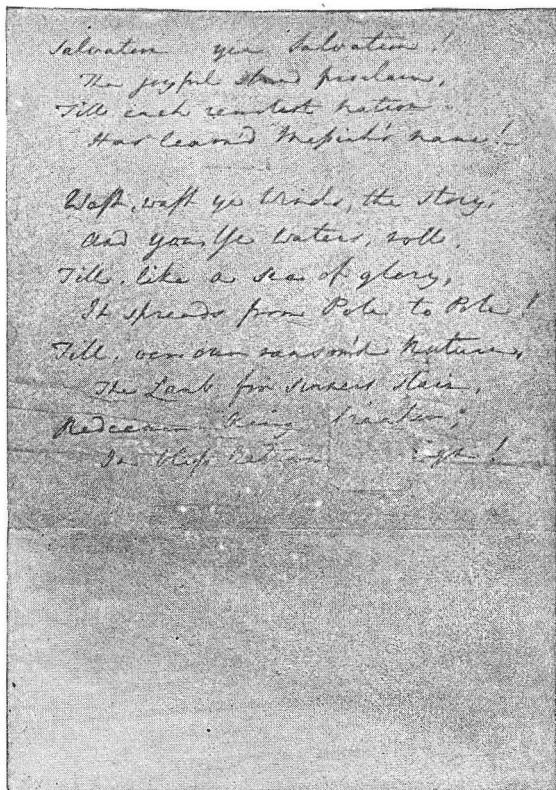 Salvation yea Salvation!
The joyful sound proclaim,
Till each remotest nation
Has learn'd Messiah's name!
Waft, waft ye Winds, the story,
And you, Ye Waters, roll,
Till, like a sea of glory,
It spreads from Pole to Pole!
Till, o'er our ransom'd Nature,
The Lamb for sinners slain,
Redeemer King Creator,
In bliss return